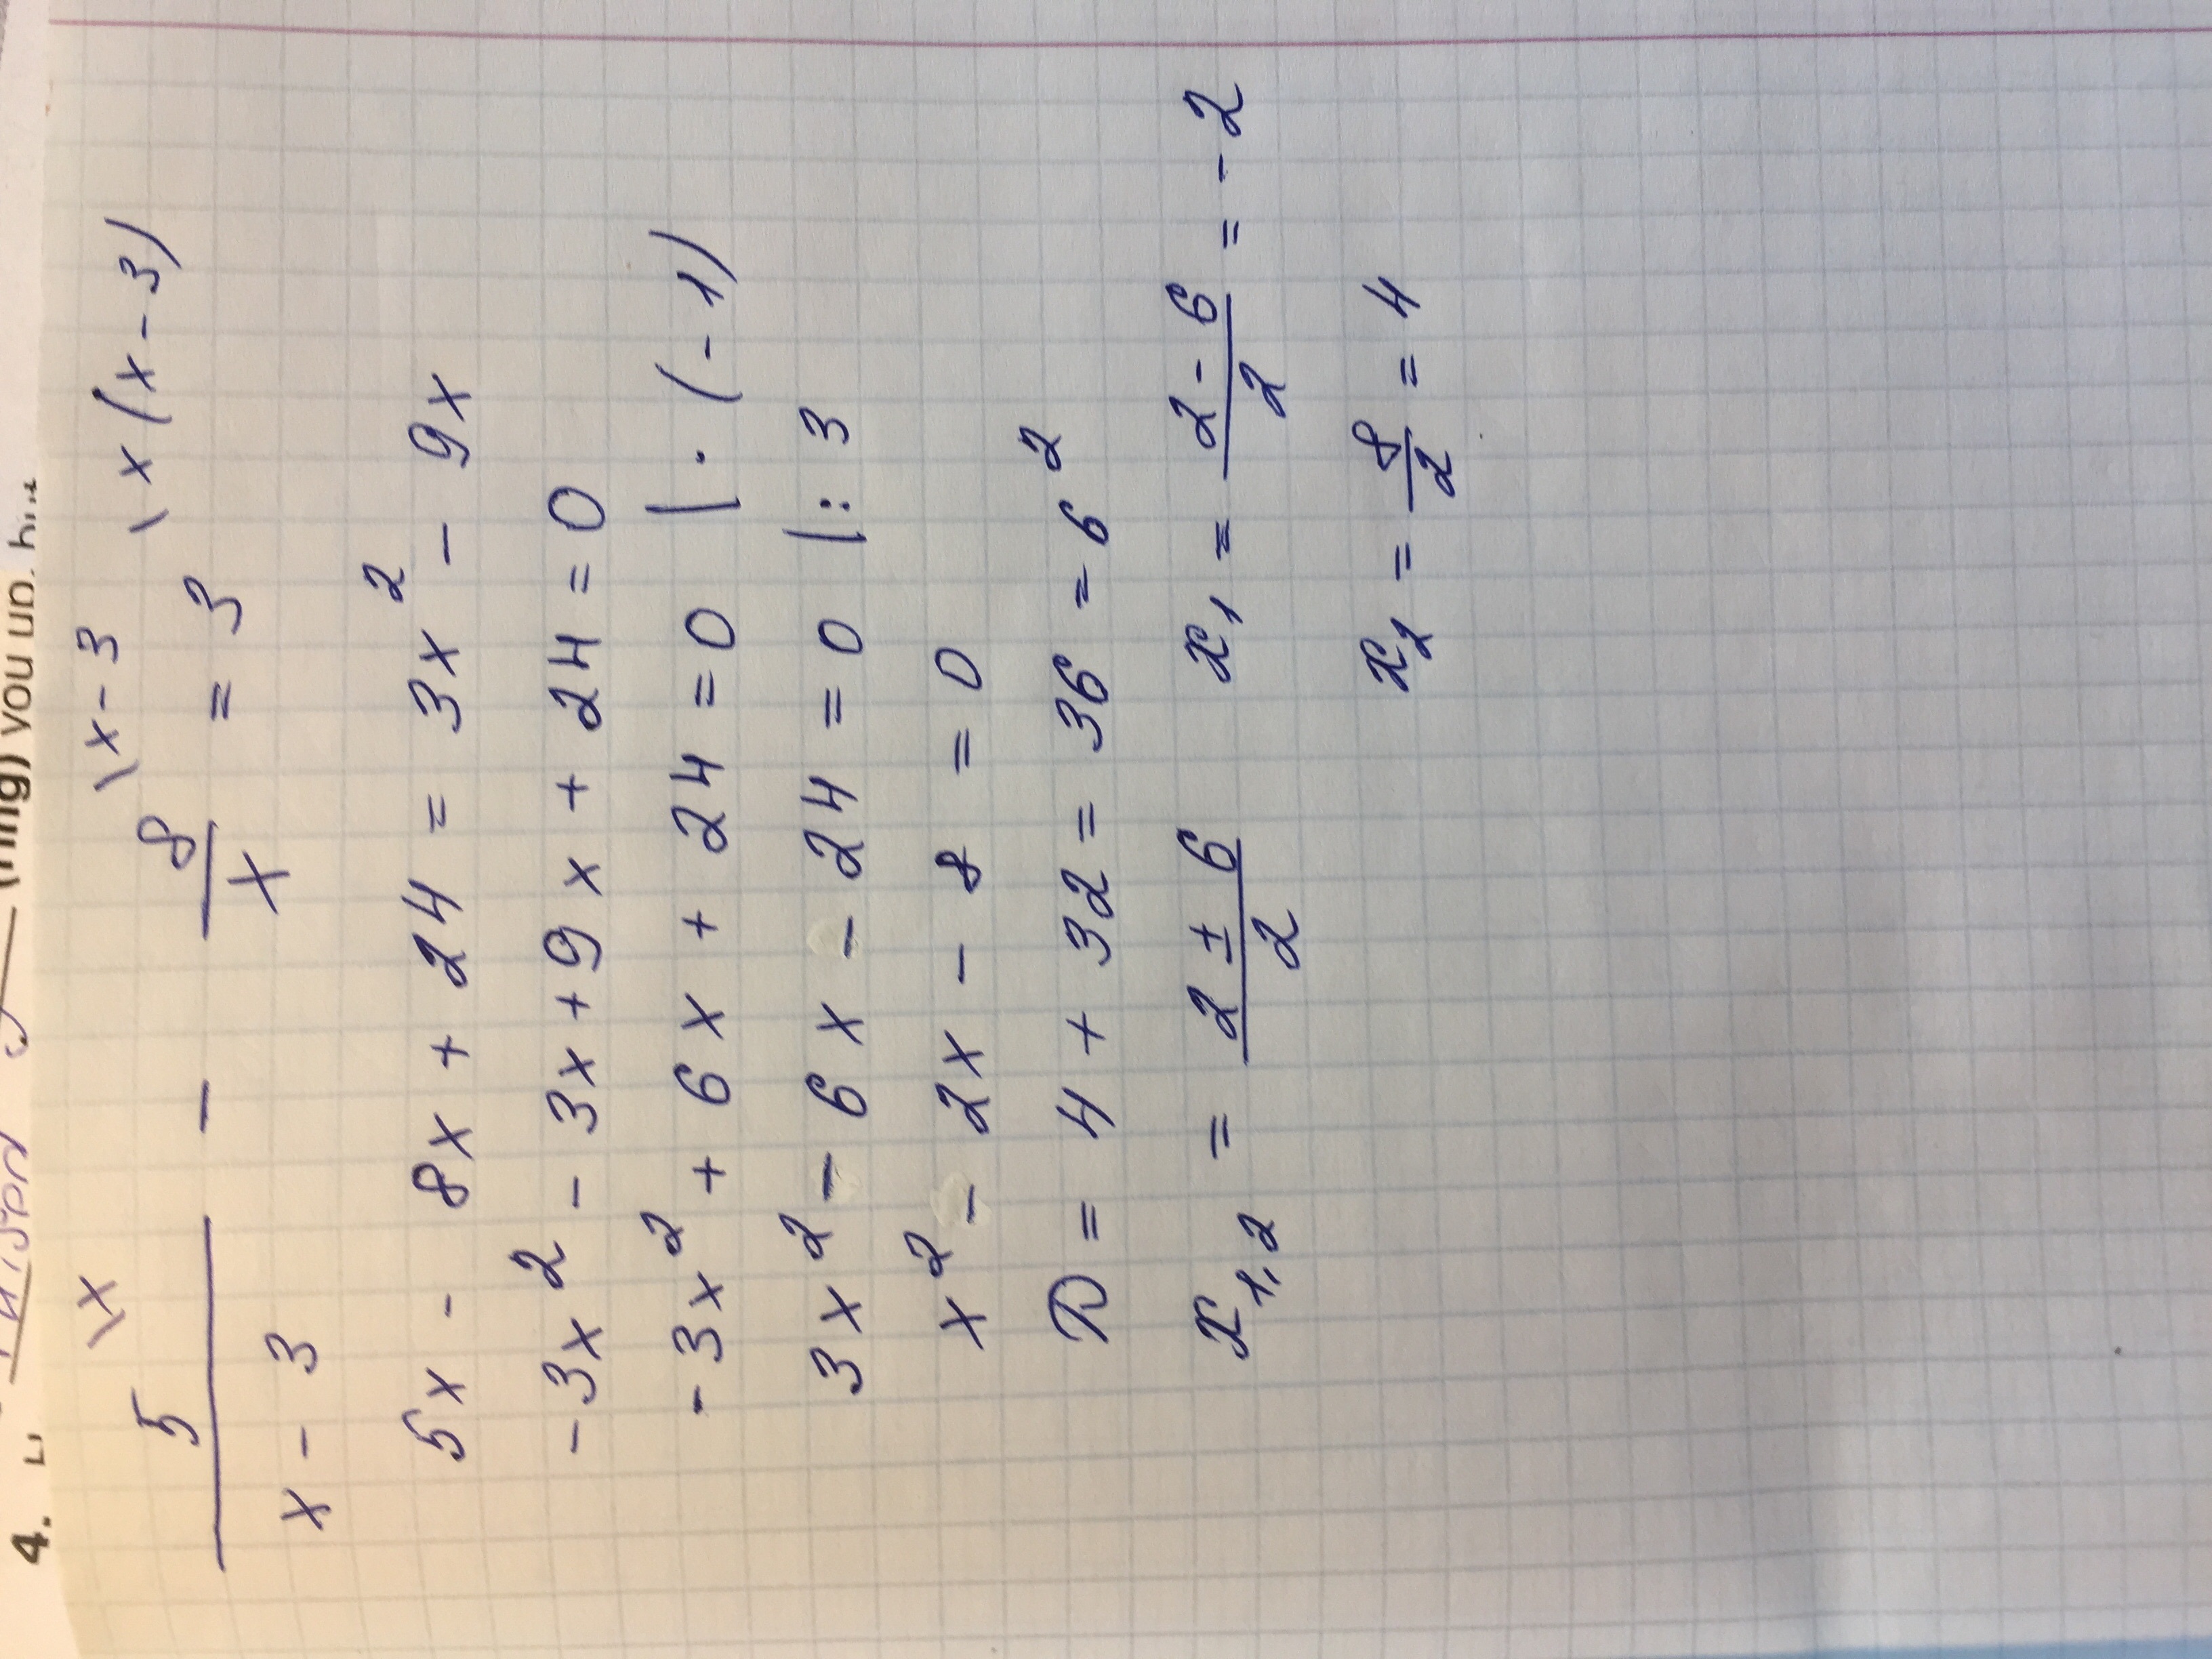 4.
(ring) you up.
5 \x / x - 3 - 8 \x-3 / x = 3 \x(x-3)
5x - 8x + 24 = 3x² - 9x
-3x² - 3x + 9x + 24 = 0
-3x² + 6x + 24 = 0 | · (-1)
3x² - 6x - 24 = 0 |: 3
x² - 2x - 8 = 0
D = 4 + 32 = 36 = 6²
x1,2 = 2 ± 6 / 2 x1 = 2 - 6 / 2 = -2
x2 = 8 / 2 = 4